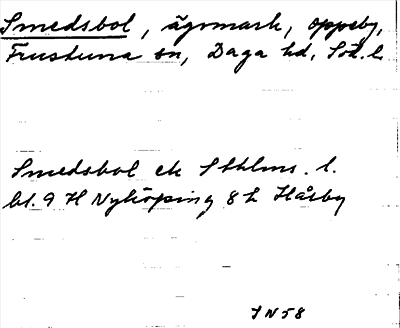 Smedsbol, ägomark, Oppeby,
Frustuna sn, Daga hd, Söd. l.
Smedsbol ek Sthlms. l.
bl. 9 H Nyköping 8 h Håsby
IN 58